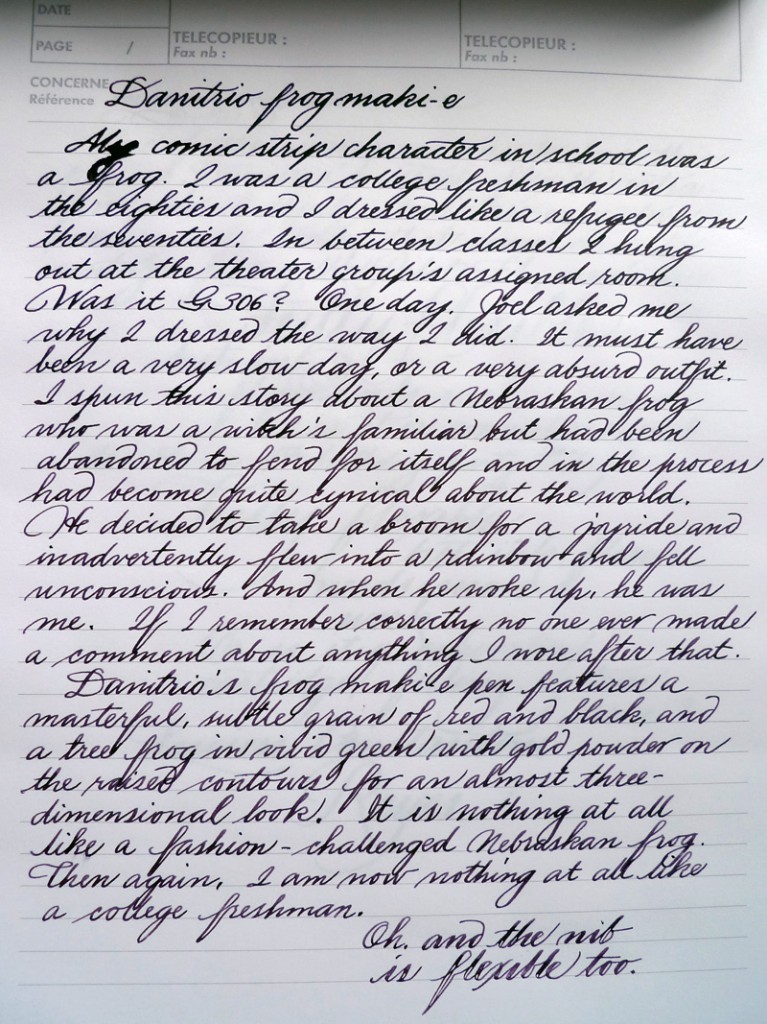 DATE
PAGE /
TELECOPIEUR :
Fax nb :
TELECOPIEUR :
Fax nb :
CONCERNE
Référence
Danitrio frog maki-e
My comic strip character in school was
a frog. I was a college freshman in
the eighties and I dressed like a refugee from
the seventies. In between classes I hung
out at the theater group's assigned room.
Was it G306? One day, Joel asked me
why I dressed the way I did. It must have
been a very slow day, or a very absurd outfit.
I spun this story about a Nebraskan frog
who was a witch's familiar but had been
abandoned to fend for itself and in the process
had become quite cynical about the world.
He decided to take a broom for a joyride and
inadvertently flew into a rainbow and fell
unconscious. And when he woke up, he was
me. If I remember correctly no one ever made
a comment about anything I wore after that.
Danitrio's frog maki-e pen features a
masterful, subtle grain of red and black, and
a tree frog in vivid green with gold powder on
the raised contours for an almost three-
dimensional look. It is nothing at all
like a fashion-challenged Nebraskan frog.
Then again, I am now nothing at all like
a college freshman.
Oh, and the nib
is flexible too.